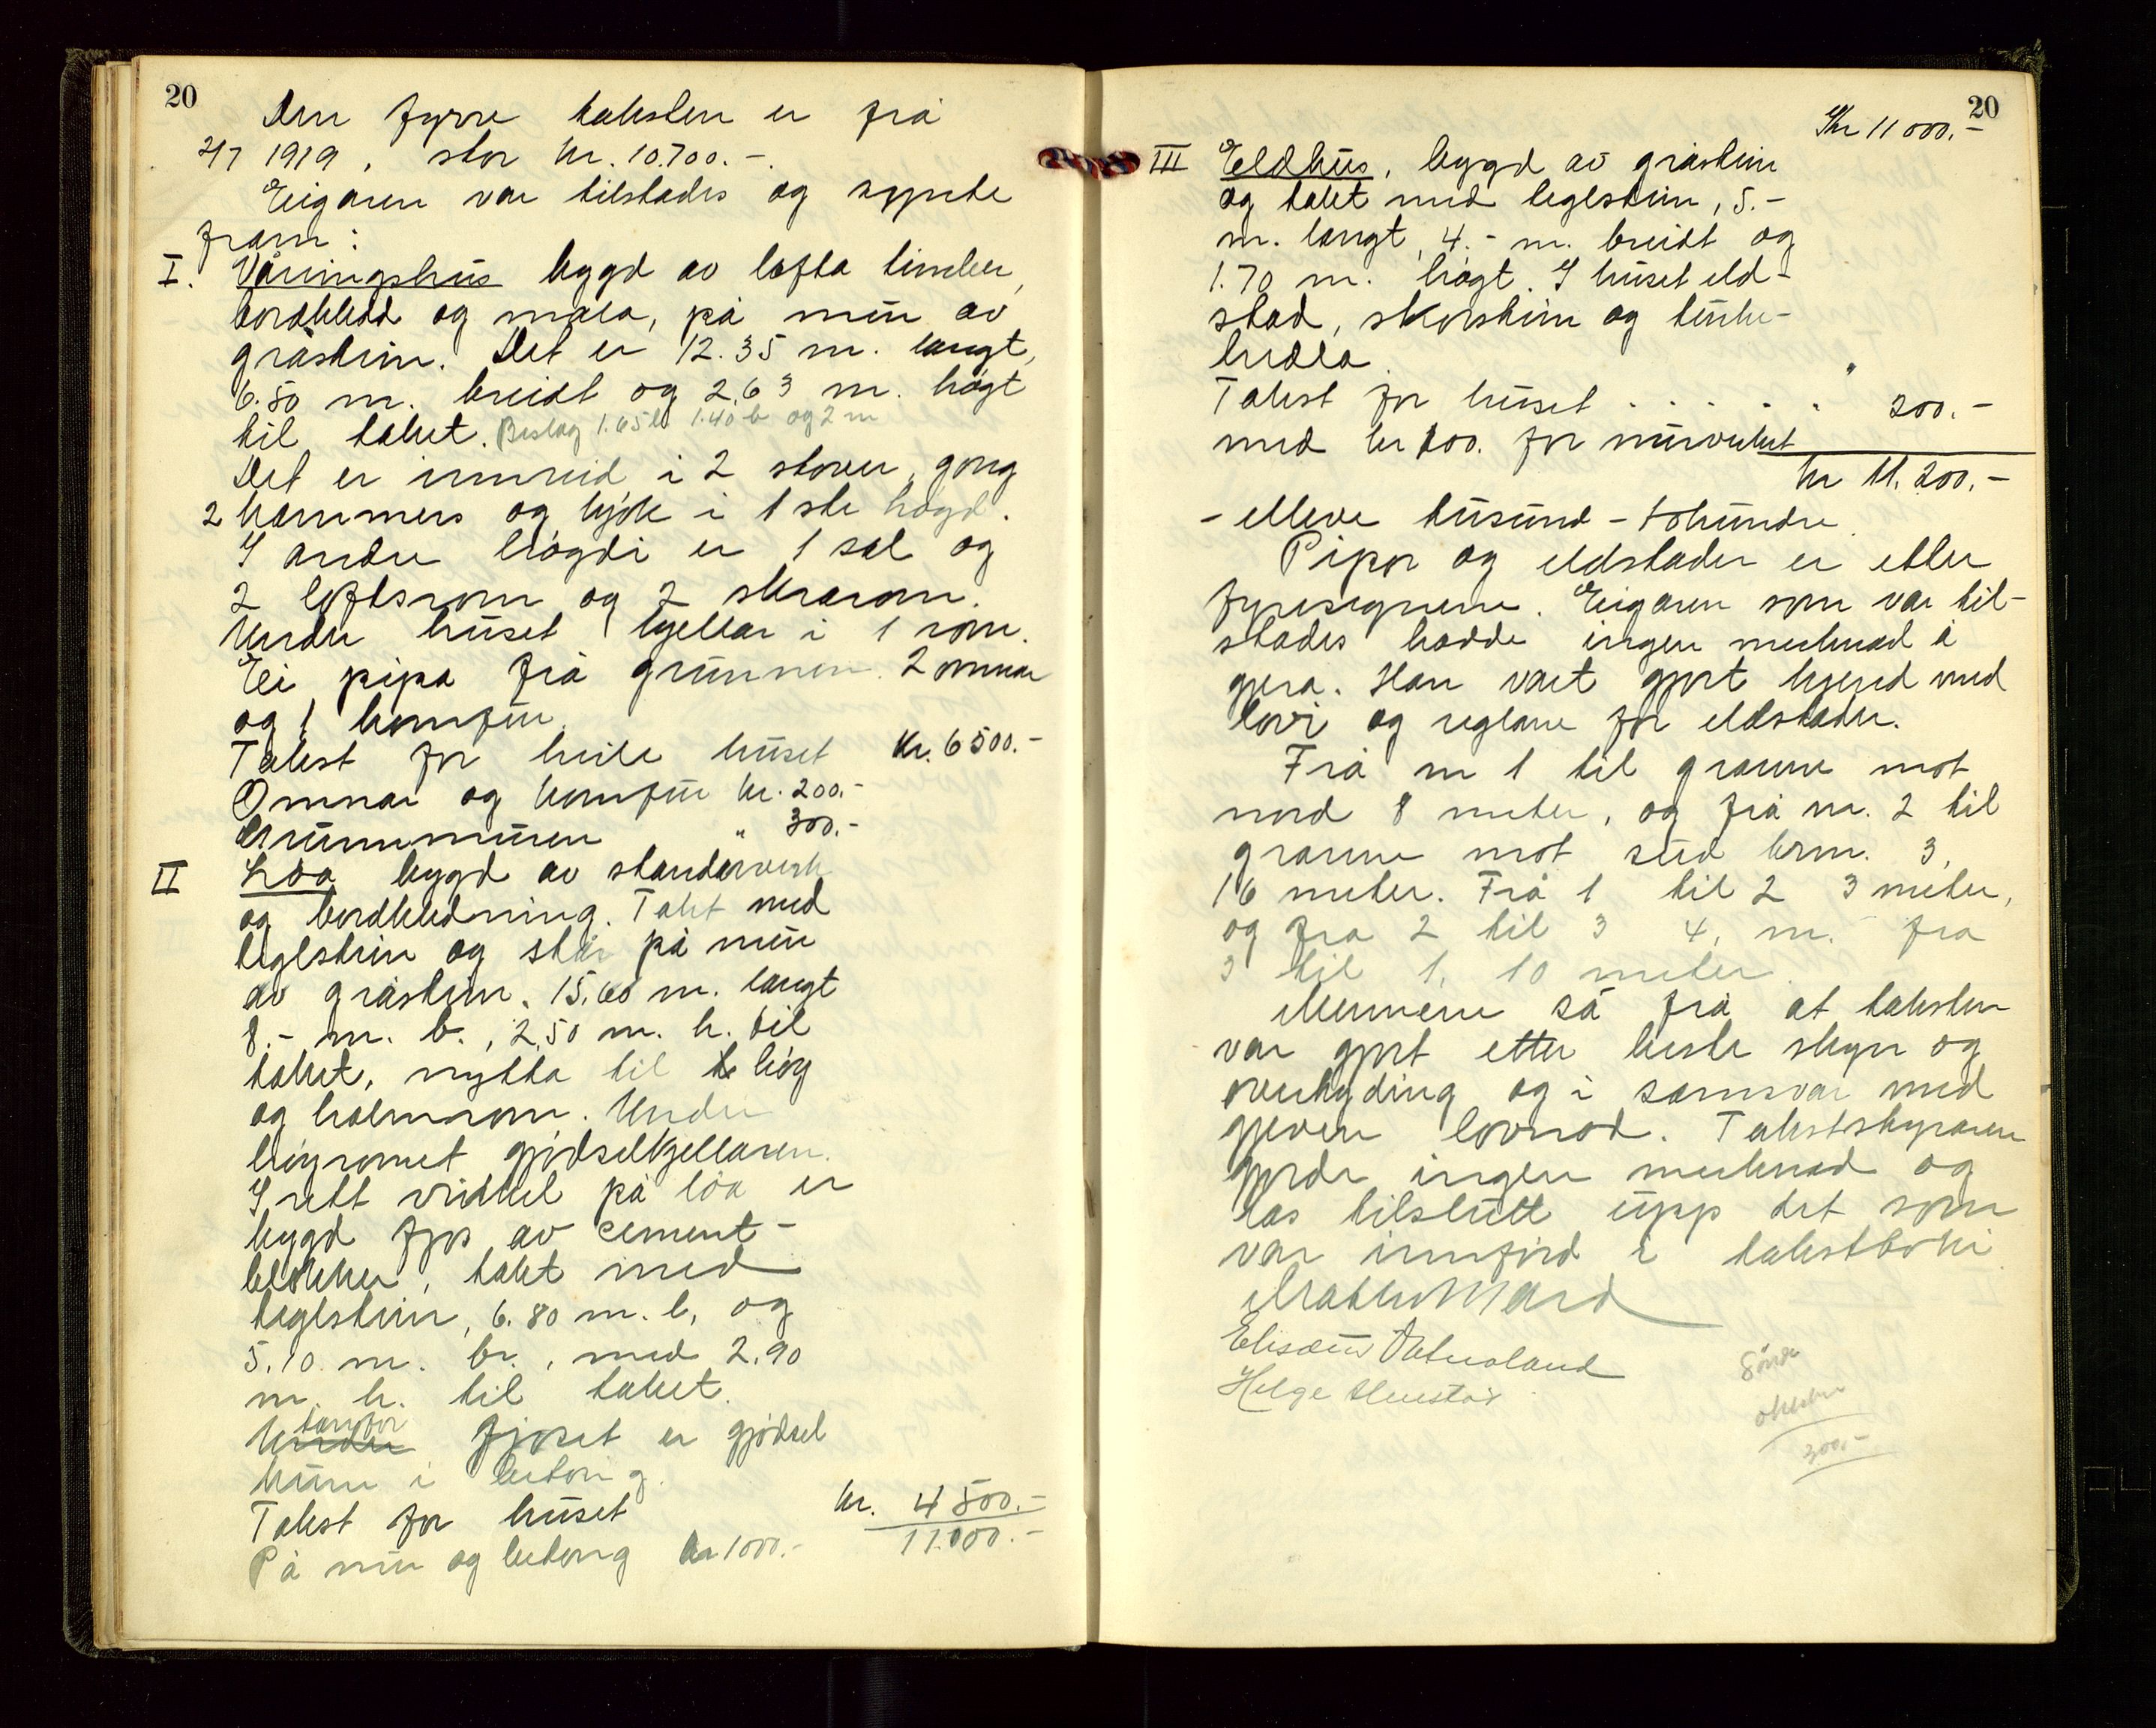 20
Den fyrre taksten er frå
2/7 1919, stor kr. 10.700.-.
Eigaren var tilstades og synte
fram:
I. Våningshus bygd av lafta timber,
bordkledd og mala, på mur av
gråstein. Det er 12.35 m. langt,
6.50 m. breidt og 2,63 m. høgt
til taket. Beslag 1.65 l. 1.40 b og 2 m
Det er innreid i 2 stover, gong
2 kammers og kjøk i 1ste høgd.
I andre høgdi er 1 sal og
2 loftsrom og 2 skrarom.
Under huset kjellar i 1 rom.
Ei pipa frå grunnen. 2 omnar
og 1 komfur.
Takst for heile huset Kr. 6500.-
Omnar og komfur kr. 200.-
Grunnmuren " 300.-
II Løa bygd av standarverk
og bordkledning. Takt med
teglstein og står på mur
av gråstein. 15,60 m. langt
8.- m. b., 2,50 m. h. til
taket, nytta til høy
og halmrom. Under
høyromet gjødselkjellaren.
I rett vinkel på løa er
bygd fjos av cement-
blokker, takt med
teglstein, 6.80 m. l. og
5.10 m. br., med 2.90
m. h. til taket.
Under framfor fjoset er gjødsel
kum i betong.
Takst for huset kr. 4500.-
På mur og betong kr 1000.- 11.000.-
20
Kr 11 000.-
III Eldhus, bygd av gråstein
og takt med teglstein, 5.-
m. langt, 4.- m. breidt og
1.70 m. høgt. I huset eld-
stad, skorstein og turke-
hødla.
Takst for huset . . . . . " 200.-
med kr 100. for murverket
kr 11.200.-
- elleve tusund - tohundre.
Pipor og eldstader er etter
fyresegnene. Eigaren som var til-
stades hadde ingen merknad å
gjera. Han vart gjort kjend med
lovi og reglane for eldstader.
Frå nr 1 til granne mot
nord 8 meter, og frå nr. 2 til
granne mot sud brnr. 3,
16 meter. Frå 1 til 2 3 meter,
og fra 2 til 3 4, m. fra
3 til 1, 10 meter.
Mennene sa frå at taksten
var gjort etter beste skyn og
overtyding og i samsvar med
gjeven lovnad. Takststyraren
gjorde ingen merknad og
las tilslutt upp det som
var innførd i takstboki
Elisæus Vatnaland
Helge
300.-